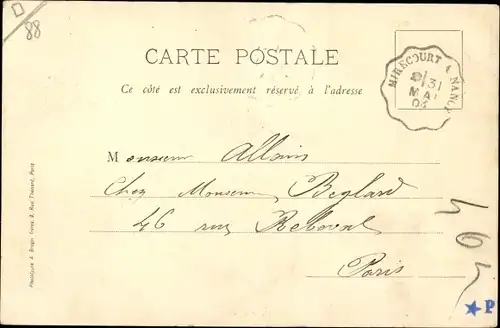 88
CARTE POSTALE
Ce côté est exclusivement réservé à l'adresse
MIRECOURT A NANCY
31
MAI
03
Monsieur Allain
Chez Monsieur Beglard
46 rue Rebeval
Paris
P